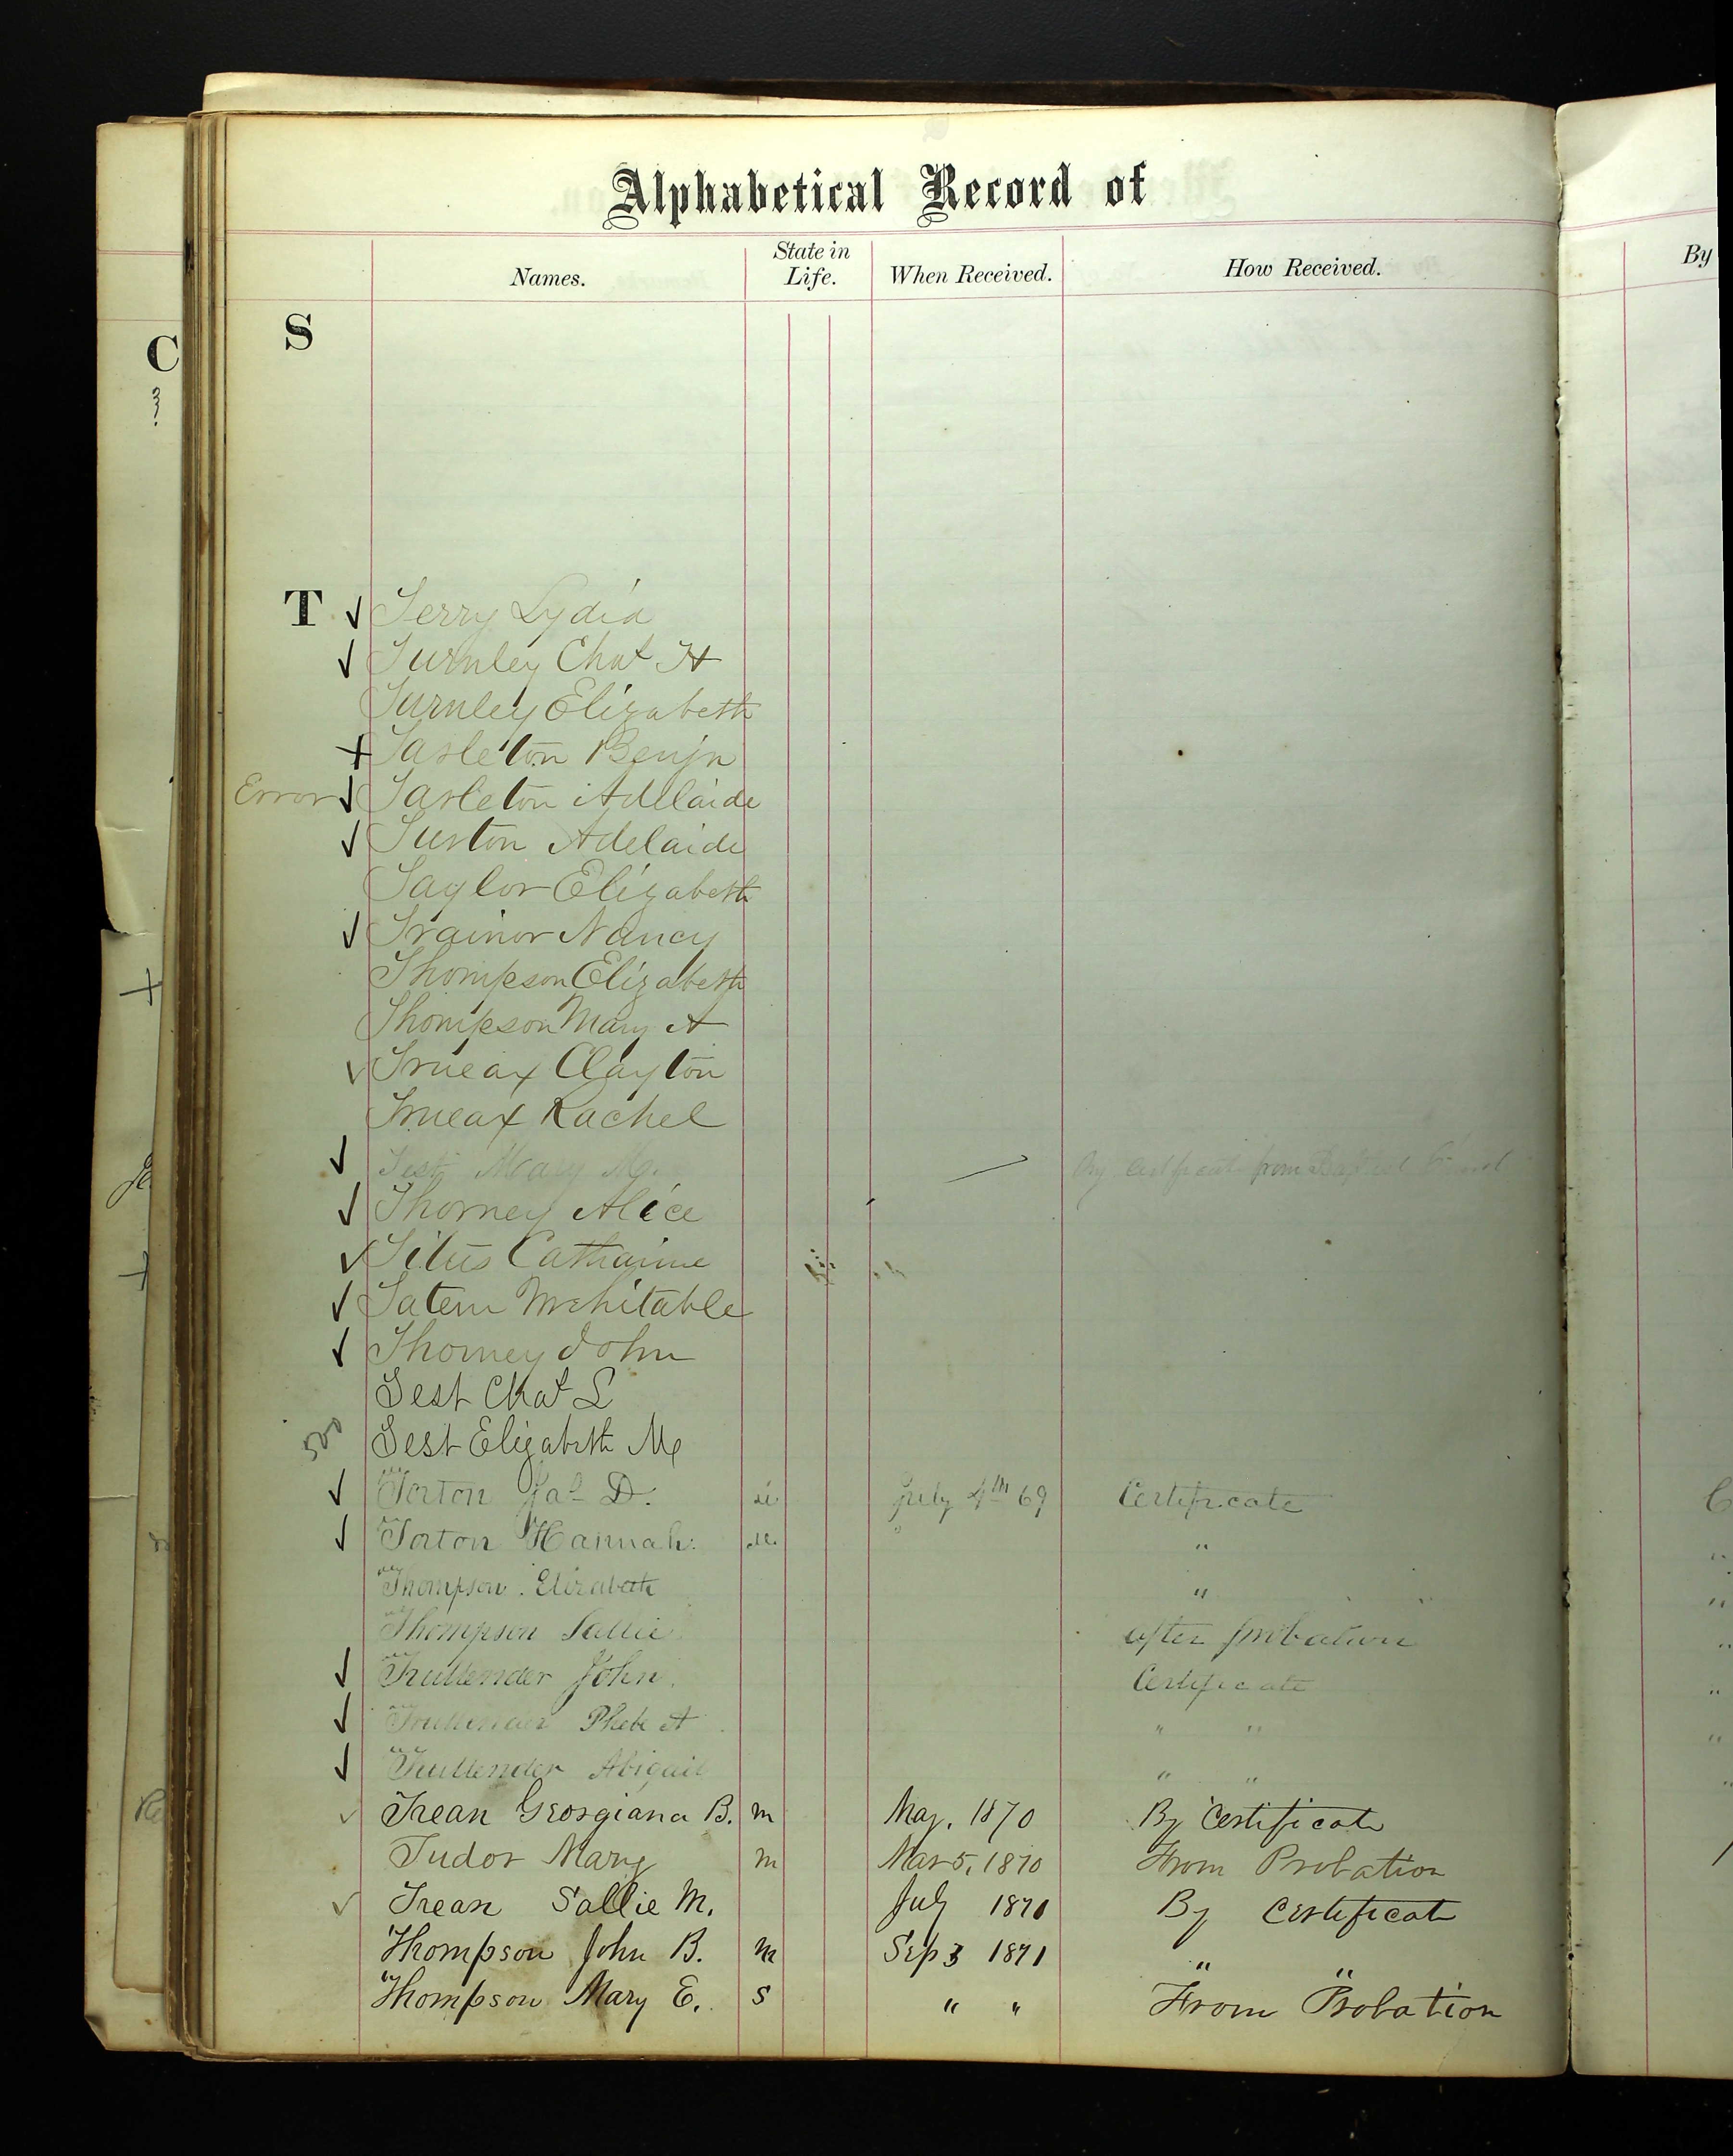 Alphabetical Record of
Names. State in Life. When Received. How Received.
By
S
C
T Terry Lydia
Turnley Chas H
Turnley Elizabeth
+ Tarleton Benjn
Error Tarleton Adelaide
Turton Adelaide
Taylor Elizabeth
Trainor Nancy
Thompson Elizabeth
Thompson Mary A
Trueax Clayton
Trueax Rachel
Test Mary M. By Certificate from Baptist
Thorney Alice
Titus Catharine
Tatem Mehitable
Thorney John
Test Chas L
500 Test Elizabeth M
Torton Jas D. July 4th 69 Certificate
Torton Hannah. "
Thompson. Elizabeth "
Thompson Sallie after probation
Trullender John. Certificate
Trullender Phebe A " "
Trullender Abigail " "
Trean Georgiana B. m May, 1870 By Certificate
Tudor Mary m Mar 5, 1870 From Probation
Trean Sallie M. July 1871 By Certificate
Thompson John B. m Sep 3 1871 " "
Thompson Mary E. S " " From Probation